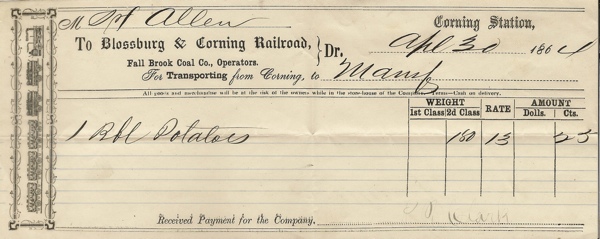 M H Allen
Corning Station,
To Blossburg & Corning Railroad,
Fall Brook Coal Co., Operators.
Dr.
Apl 30 1864
For Transporting from Corning, to Mansf
All goods and merchandise will be at the risk of the owners while in the store-house of the Company. Terms—Cash on delivery.
WEIGHT RATE AMOUNT
1st Class 2d Class Dolls. Cts.
1 Bbl Potatoes 180 13 23
Received Payment for the Company,